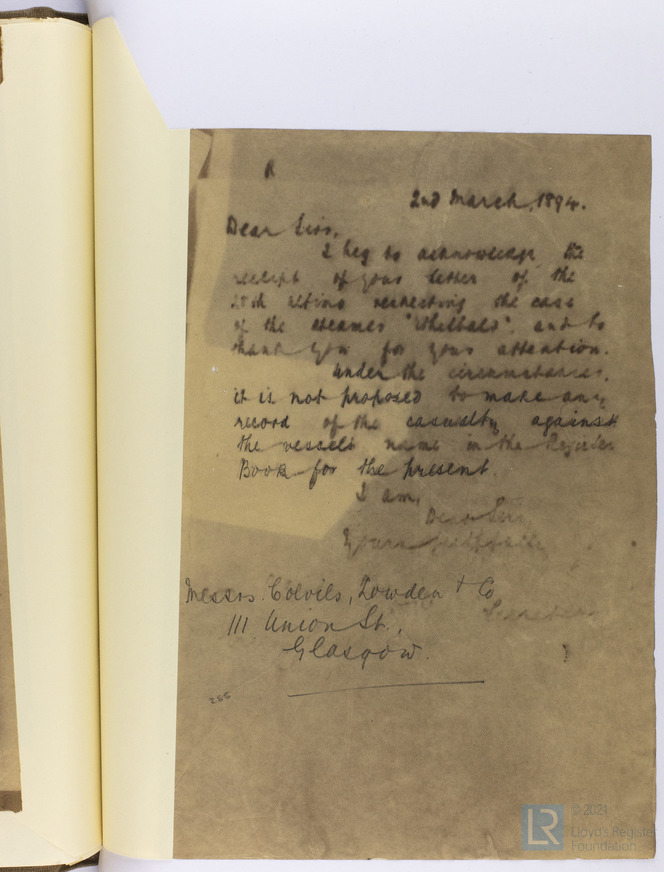 R
2nd March, 1894.
Dear Sirs,
I beg to acknowledge the
receipt of your letter of the
28th ultimo respecting the case
of the steamer "Ethelbald", and to
thank you for your attention.
Under the circumstances,
it is not proposed to make any
record of the casualty against
the vessel's name in the Register
Book for the present.
I am,
Dear Sirs,
Yours faithfully
Secretary
Messrs. Colvils, Lowden & Co
111 Union St.,
Glasgow.
© 2021
LR
Lloyd's Register
Foundation